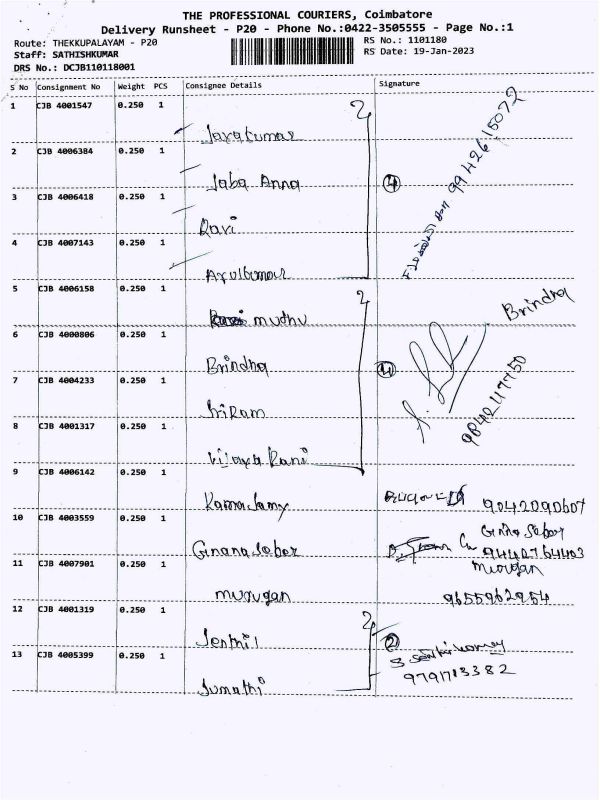 THE PROFESSIONAL COURIERS, Coimbatore
Delivery Runsheet - P20 - Phone No.:0422-3505555 - Page No.:1
Route: THEKKUPALAYAM - P20
RS No.: 1101180
Staff: SATHISHKUMAR
RS Date: 19-Jan-2023
DRS No.: DCJB110118001
S No Consignment No Weight PCS Consignee Details Signature
1 CJB 4001547 0.250 1 2
Jayakumar 99426 15072
2 CJB 4006384 0.250 1
Jaba Anna 4
3 CJB 4006418 0.250 1
Ravi
4 CJB 4007143 0.250 1
Arulkumar
5 CJB 4006158 0.250 1 2
mudhu Brindha
6 CJB 4000806 0.250 1
Brindha 4
7 CJB 4004233 0.250 1
Sriram 9842117750
8 CJB 4001317 0.250 1
Vijaya Rani
9 CJB 4006142 0.250 1
Ramasamy 9042090607
10 CJB 4003559 0.250 1
Gnana Sekar
11 CJB 4007901 0.250 1 Murugan
murugan 9655962954
12 CJB 4001319 0.250 1 2
Senthil 2
13 CJB 4005399 0.250 1
Sumathi 9791713382